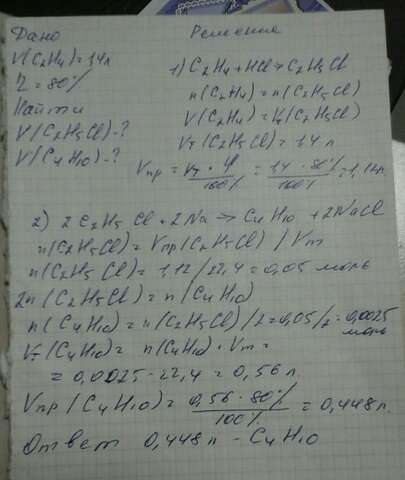 Дано
Решение
V(C2H4)=1,4л
η=80%
Найти
V(C2H5Cl)-?
V(C4H10)-?
1) C2H4+HCl→C2H5Cl
n(C2H4)=n(C2H5Cl)
V(C2H4)=V(C2H5Cl)
Vт(C2H5Cl)=1,4 л
Vпр=Vт·η/100%=1,4·80%/100%=1,12л.
2) 2C2H5Cl+2Na→C4H10+2NaCl
n(C2H5Cl)=Vпр(C2H5Cl)/Vm
n(C2H5Cl)=1,12/22,4=0,05 моль
2n(C2H5Cl)=n(C4H10)
n(C4H10)=n(C2H5Cl)/2=0,05/2=0,0025 моль
Vт(C4H10)=n(C4H10)·Vm=
=0,0025·22,4=0,56 л.
Vпр(C4H10)=0,56·80%/100%=0,448л.
Ответ 0,448л - C4H10